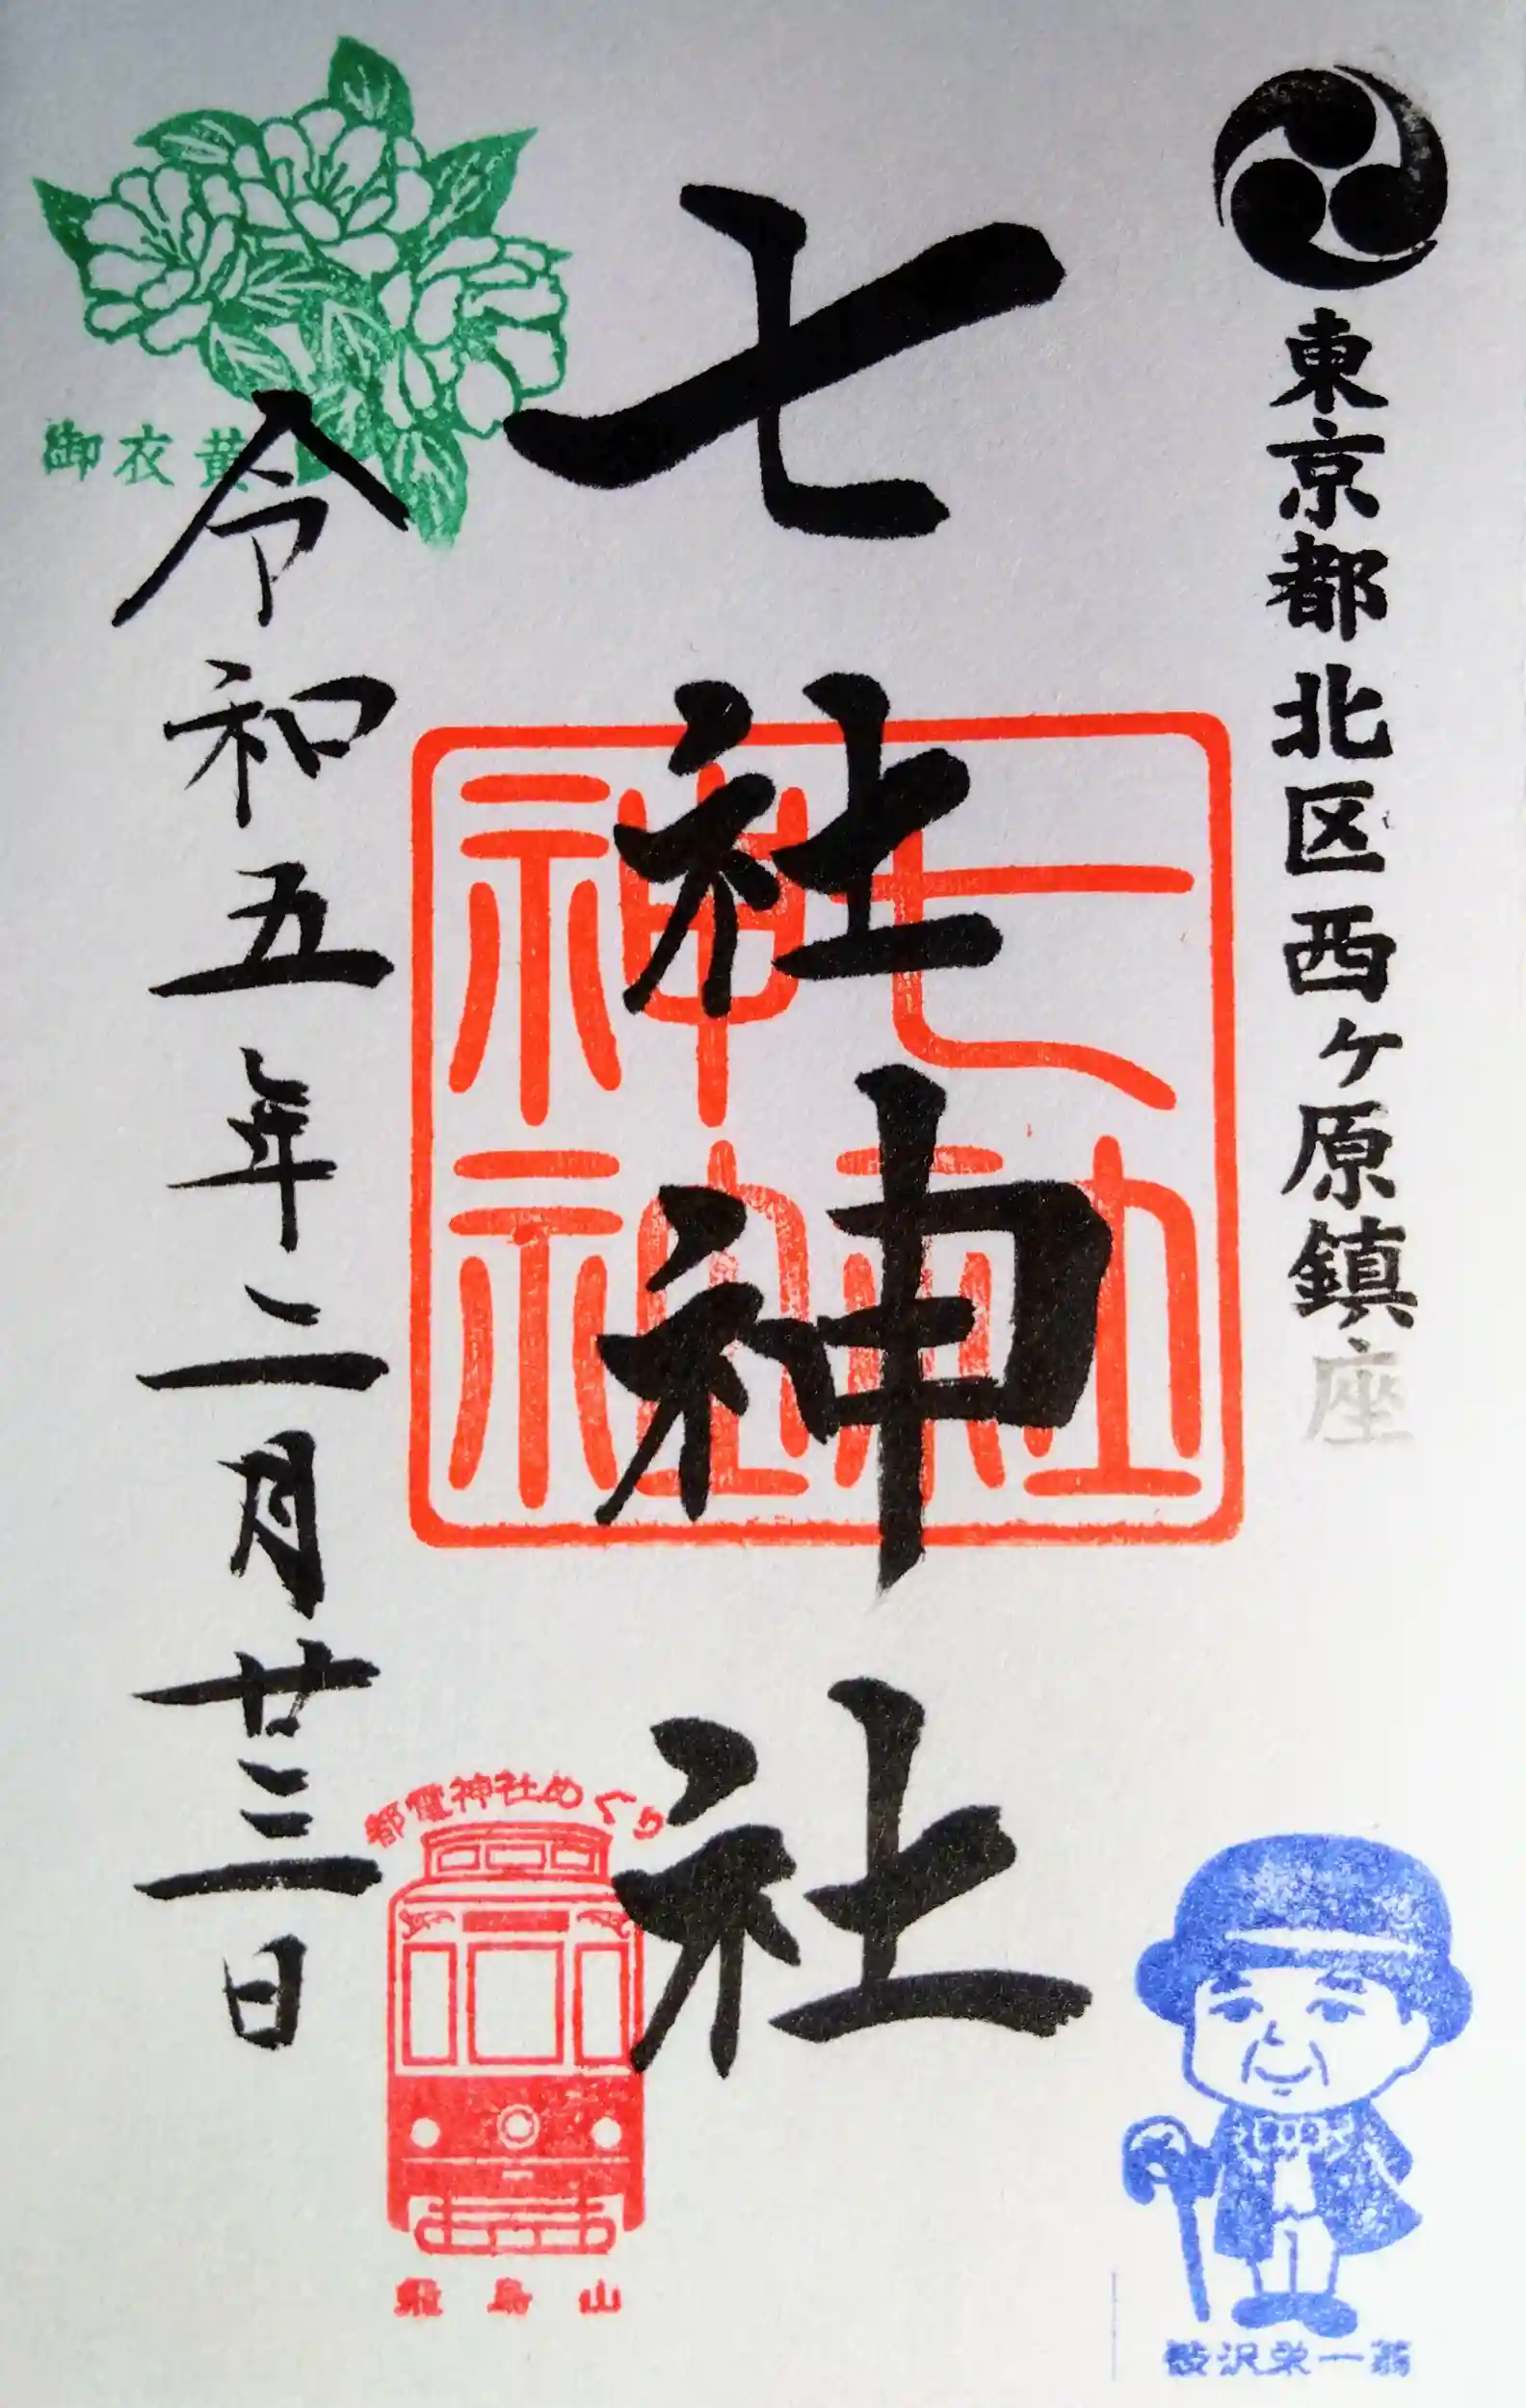 東京都北区西ヶ原鎮座
七社神社
七社神社
令和五年二月廿三日
御衣黄
都電神社めぐり
飛鳥山
渋沢栄一翁